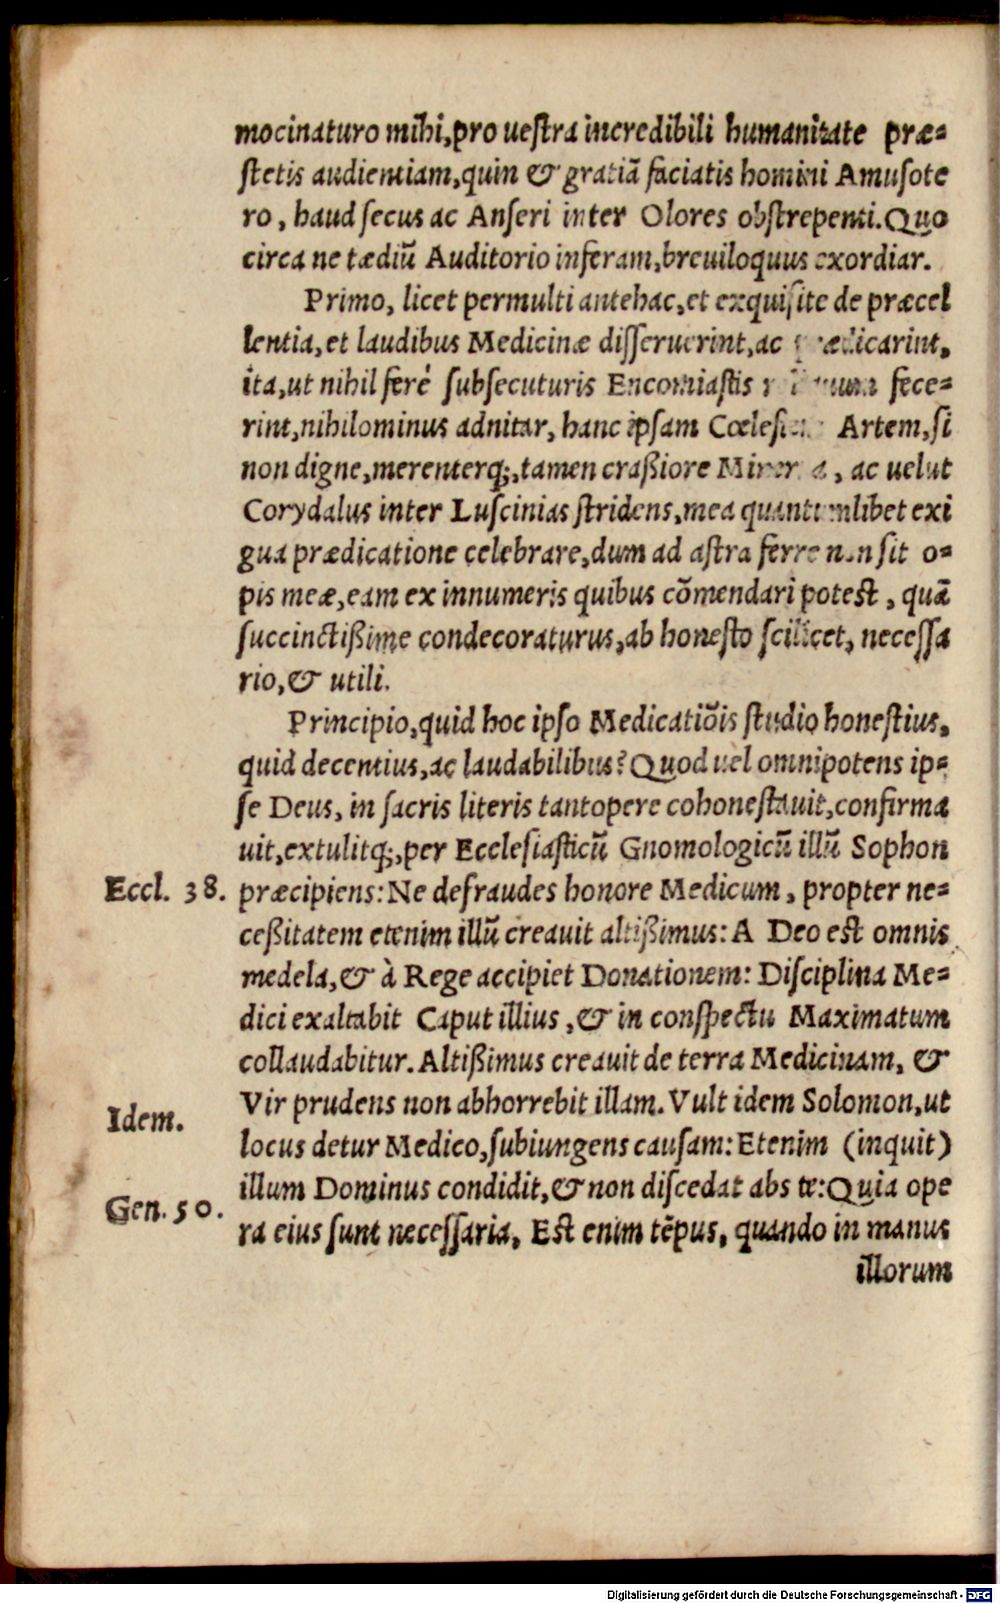 mocinaturo mihi, pro uestra incredibili humanitate præ=
stetis audientiam, quin & gratiā faciatis homini Amusote
ro, haud secus ac Anseri inter Olores obstrepenti. Quo
circa ne tædiū Auditorio inferam, breuiloquus exordiar.
Primo, licet permulti antehac, et exquisite de præcel
lentia, et laudibus Medicinæ disseruerint, ac prædicarint,
ita, ut nihil ferè subsecuturis Encomiastis fece=
rint, nihilominus adnitar, hanc ipsam Cœlestem Artem, si
non digne, merenterq;, tamen craßiore Minerua, ac uelut
Corydalus inter Luscinias stridens, mea quantumlibet exi
gua prædicatione celebrare, dum ad astra ferre non sit o=
pis meæ, eam ex innumeris quibus cōmendari potest, quā
succinctißime condecoraturus, ab honesto scilicet, necessa
rio, & utili.
Principio, quid hoc ipso Medicatiōis studio honestius,
quid decentius, ac laudabilibus? Quod uel omnipotens ip=
se Deus, in sacris literis tantopere cohonestauit, confirma
uit, extulitq;, per Ecclesiasticū Gnomologicū illū Sophon
Eccl. 38. præcipiens: Ne defraudes honore Medicum, propter ne=
ceßitatem etenim illū creauit altißimus: A Deo est omnis
medela, & à Rege accipiet Donationem: Disciplina Me=
dici exaltabit Caput illius, & in conspectu Maximatum
collaudabitur. Altißimus creauit de terra Medicinam, &
Vir prudens non abhorrebit illam. Vult idem Solomon, ut
Idem.
locus detur Medico, subiungens causam: Etenim (inquit)
illum Dominus condidit, & non discedat abs te: Quia ope
Gen. 50.
ra eius sunt necessaria, Est enim tēpus, quando in manus
illorum
Digitalisierung gefördert durch die Deutsche Forschungsgemeinschaft - DFG